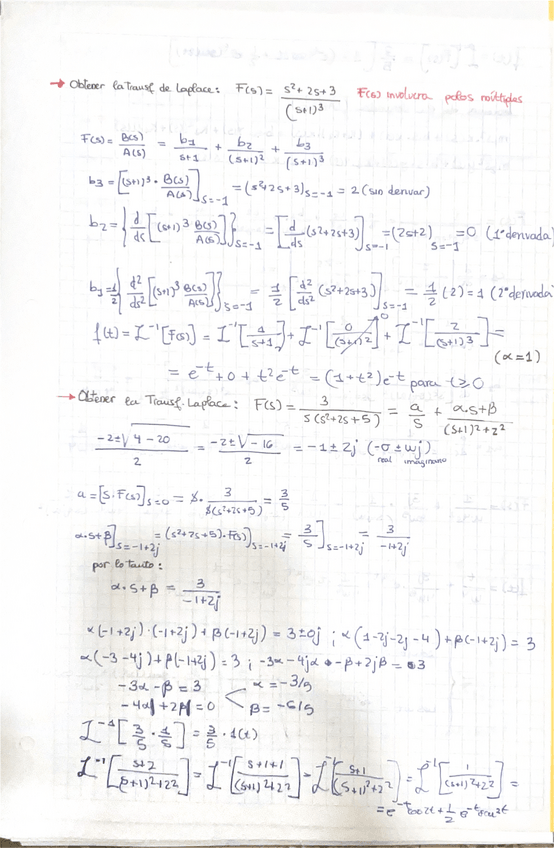 → Obtener la Transf. de Laplace: F(s) = s²+2s+3 / (s+1)³ F(s) involucra polos múltiples
F(s) = B(s)/A(s) = b1/(s+1) + b2/(s+1)² + b3/(s+1)³
b3 = [(s+1)³ · B(s)/A(s)]s=-1 = (s²+2s+3)s=-1 = 2 (sin derivar)
b2 = {d/ds [(s+1)³ B(s)/A(s)]}s=-1 = [d/ds (s²+2s+3)]s=-1 = (2s+2)s=-1 = 0 (1ª derivada)
b1 = 1/2 {d²/ds² [(s+1)³ B(s)/A(s)]}s=-1 = 1/2 [d²/ds² (s²+2s+3)]s=-1 = 1/2 (2) = 1 (2ª derivada)
f(t) = ℒ⁻¹[F(s)] = ℒ⁻¹[1/(s+1)] + ℒ⁻¹[0/(s+1)²] 0 + ℒ⁻¹[2/(s+1)³] =
(α=1)
= e^-t + 0 + t²e^-t = (1+t²)e^-t para t≥0
→ Obtener la Transf. Laplace: F(s) = 3 / s(s²+2s+5) = a/s + α·s+β / (s+1)²+2²
-2±√4-20 / 2 = -2±√-16 / 2 = -1±2j (-σ±ωj)
real imaginario
a = [s·F(s)]s=0 = s· 3 / s(s²+2s+5) = 3/5
α·s+β]s=-1+2j = (s²+2s+5)·F(s)]s=-1+2j = 3/s]s=-1+2j = 3/-1+2j
por lo tanto:
α·s+β = 3/-1+2j
α(-1+2j)·(-1+2j)+β(-1+2j) = 3±0j ; α(1-2j-2j-4)+β(-1+2j) = 3
α(-3-4j)+β(-1+2j) = 3 ; -3α-4jα-β+2jβ = 3
-3α-β = 3 α = -3/5
-4α+2β = 0 β = -6/5
ℒ⁻¹[3/5 · 1/s] = 3/5 · 1(t)
ℒ⁻¹[s+2/(s+1)²+2²] = ℒ⁻¹[s+1+1/(s+1)²+2²] = ℒ⁻¹[s+1/(s+1)²+2²] = ℒ⁻¹[1/(s+1)²+2²] =
= e^-t cos2t + 1/2 e^-t sen2t